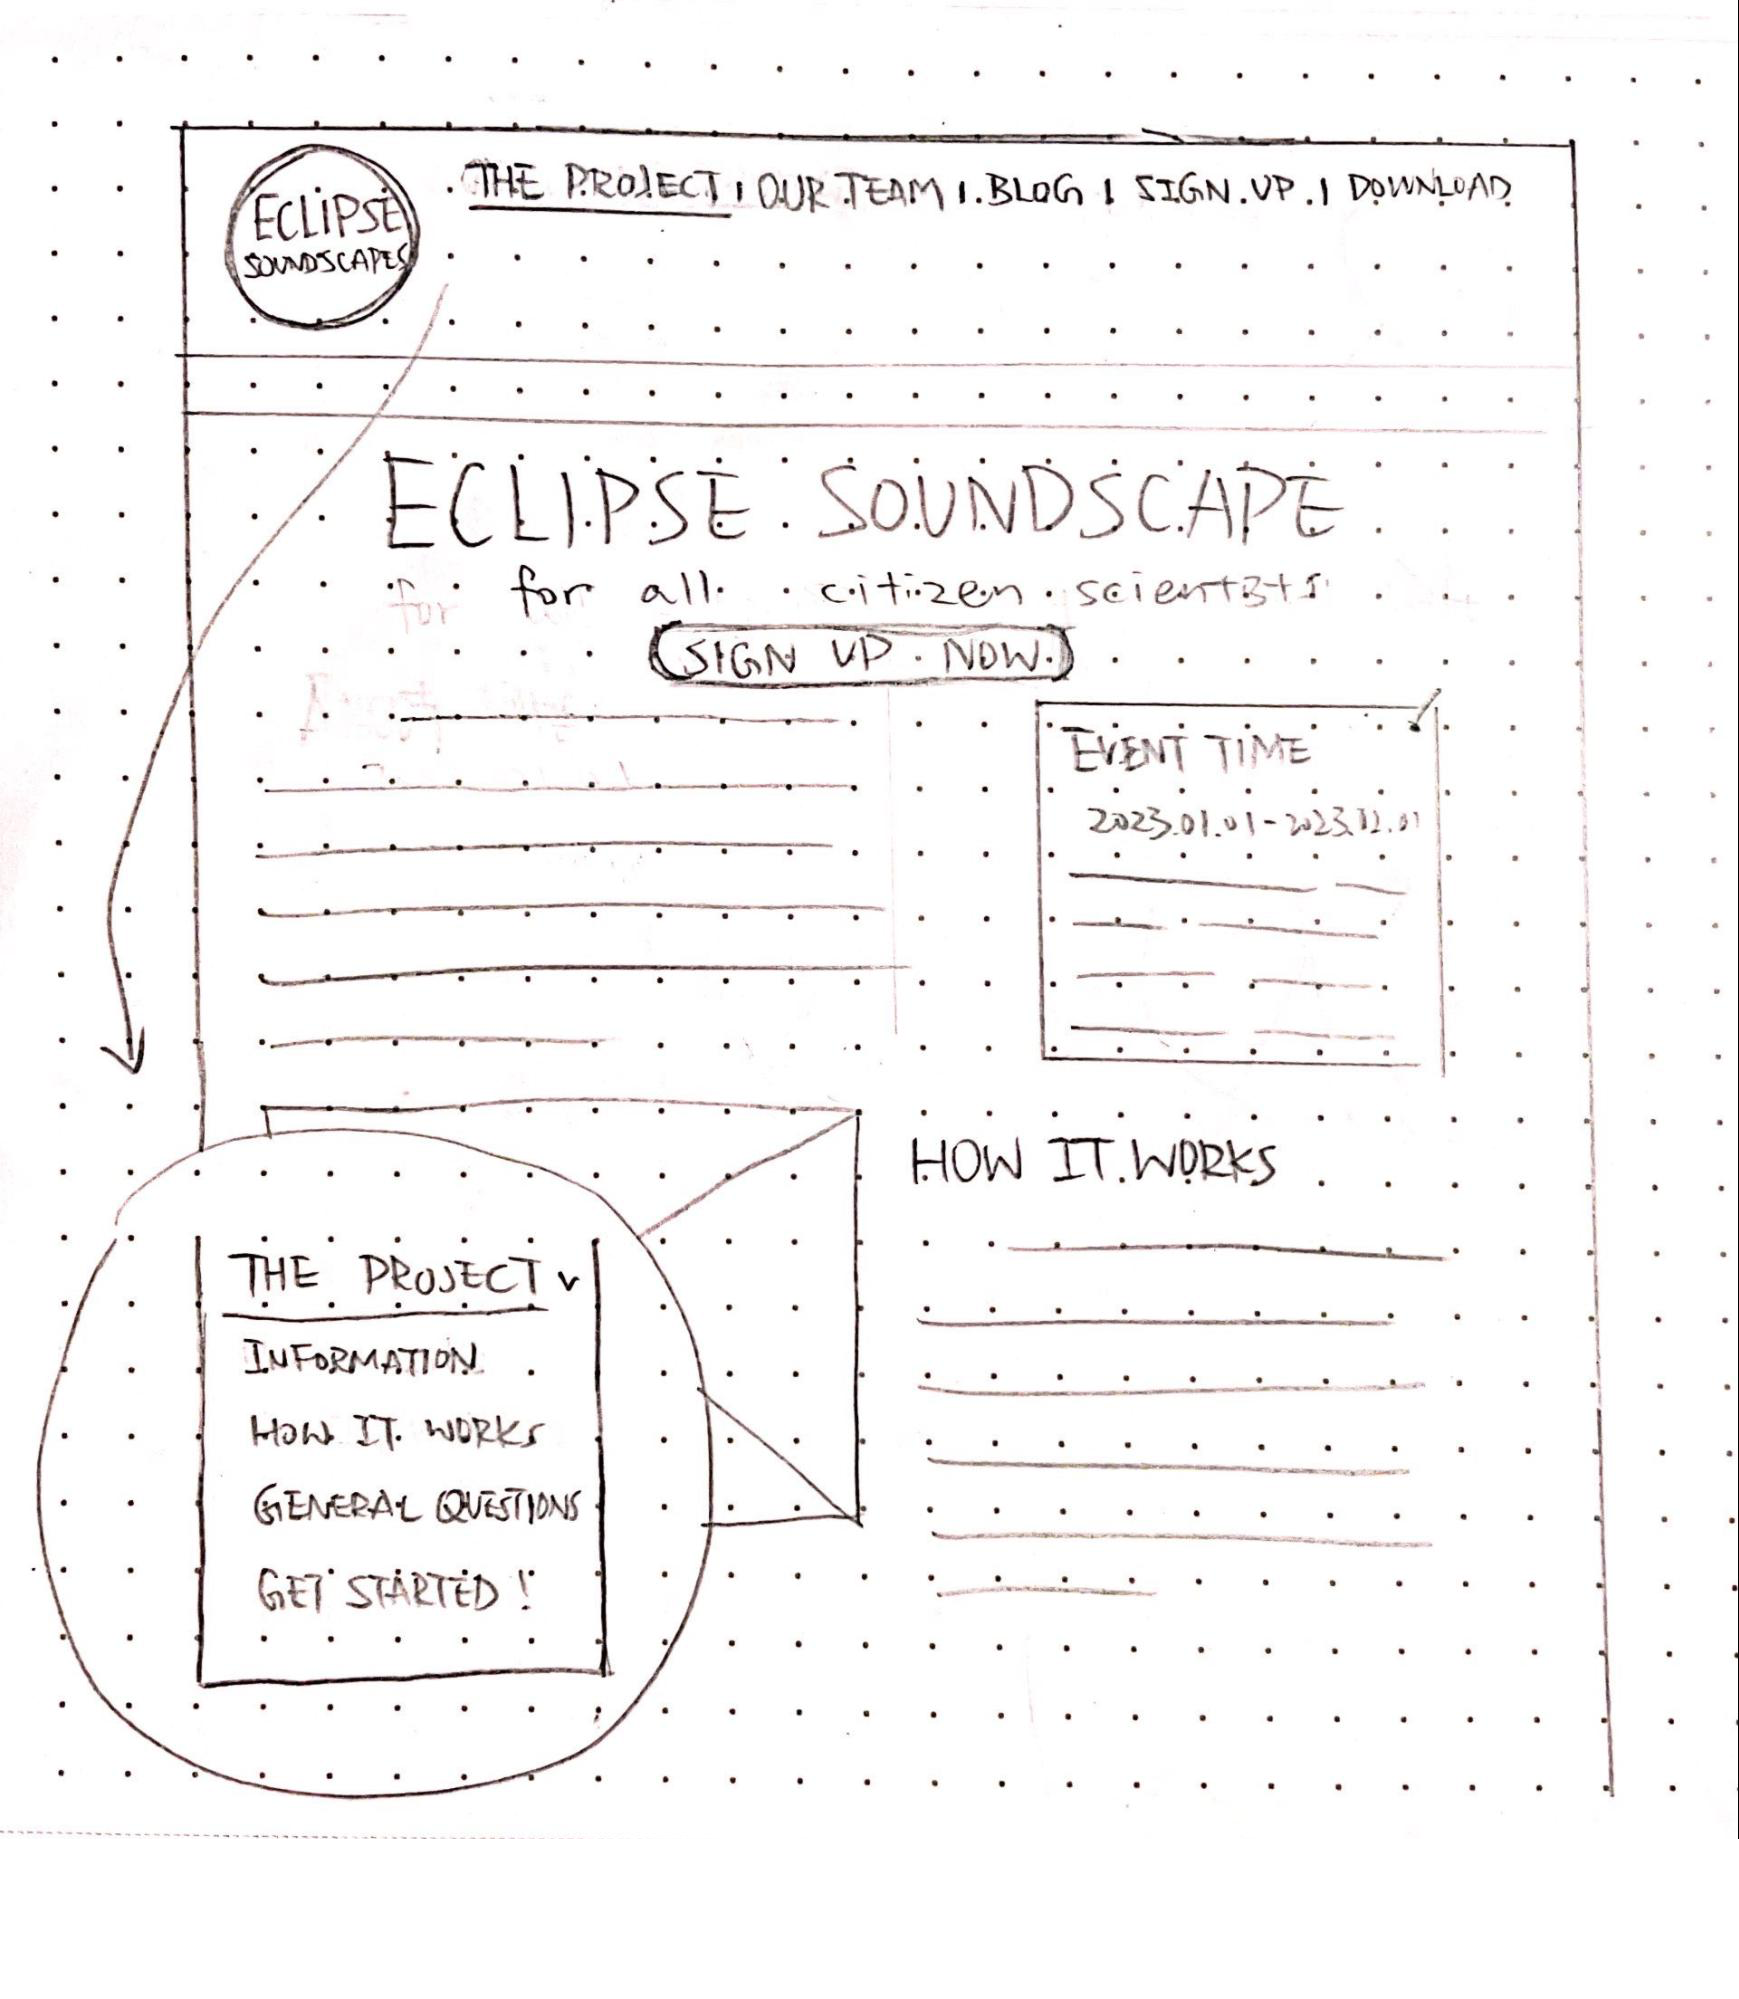 ECLIPSE
SOUNDSCAPES
THE PROJECT | OUR TEAM | BLOG | SIGN UP | DOWNLOAD
ECLIPSE SOUNDSCAPE
for
for all citizen scientists
SIGN UP NOW
EVENT TIME
2023.01.01-2023.12.01
HOW IT WORKS
THE PROJECT v
INFORMATION
HOW IT WORKS
GENERAL QUESTIONS
GET STARTED!